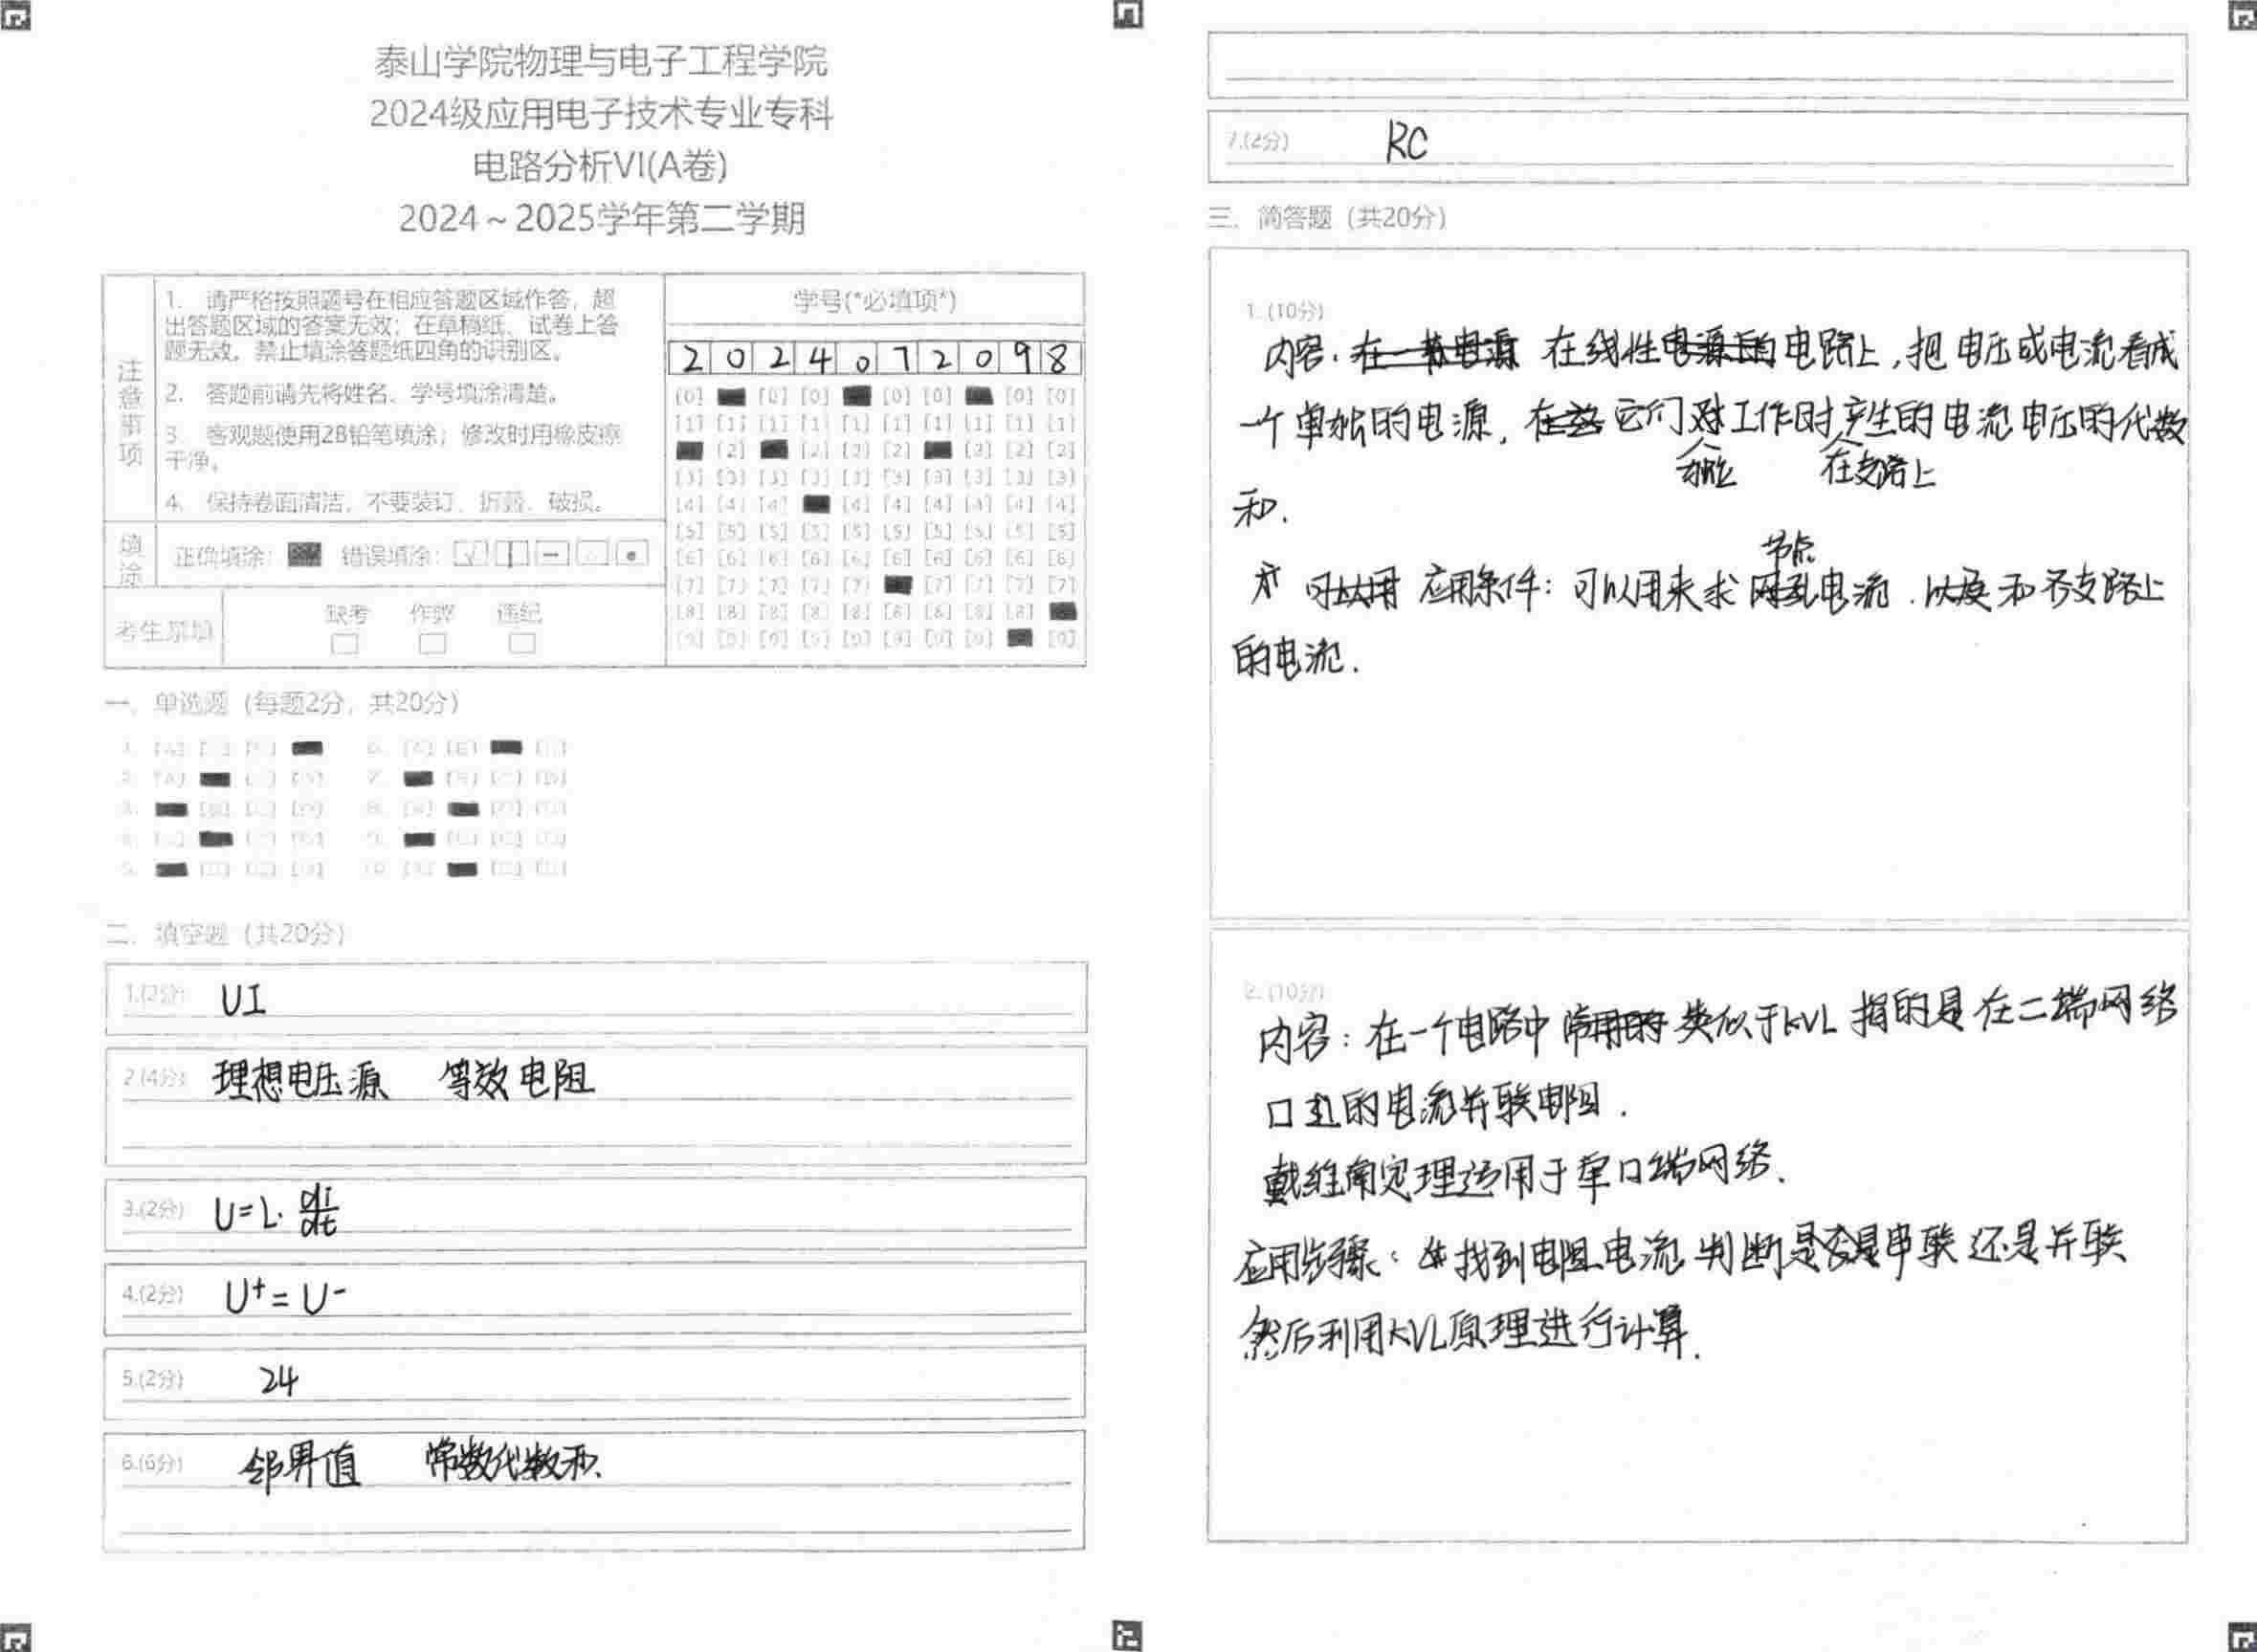 泰山学院物理与电子工程学院
2024级应用电子技术专业专科
电路分析VI(A卷)
2024～2025学年第二学期
注意事项
1. 请严格按照题号在相应答题区域作答，超
出答题区域的答案无效；在草稿纸、试卷上答
题无效。禁止填涂答题纸四角的识别区。
2. 答题前请先将姓名、学号填涂清楚。
3. 客观题使用2B铅笔填涂；修改时用橡皮擦
干净。
4. 保持卷面清洁，不要装订、折叠、破损。
填涂
正确填涂： 错误填涂：
缺考 作弊 违纪
学号(*必填项*)
2 0 2 4 0 7 2 0 9 8
一. 单选题 (每题2分，共20分)
二. 填空题 (共20分)
1.(2分) UI
2.(4分) 理想电压源 等效电阻
3.(2分) U=L·di/dt
4.(2分) U+=U-
5.(2分) 24
6.(6分) 邻界值 常数代数和
7.(2分) RC
三. 简答题 (共20分)
1. (10分)
内容：在线性电路上，把电压或电流看成
一个单独的电源，它们对工作时产生的电流电压的代数
在支路上
和．
节点
应用条件：可以用来求电流．以及和各支路上
的电流．
2. (10分)
内容：在一个电路中类似于KVL 指的是在二端网络
口的电流并联电阻．
戴维南定理适用于单口端网络．
应用步骤：找到电阻电流判断是串联还是并联
然后利用KVL原理进行计算．